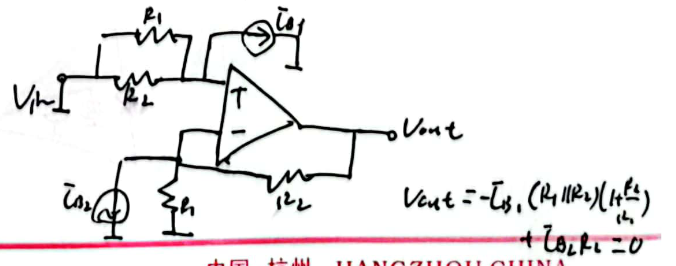 R₁
I_B1
R₂
Vin
+
−
Vout
I_B2
R₁
R₂
Vout = -I_B1 (R₁||R₂)(1+R₂/R₁)
+ I_B2 R₂ = 0
中国 杭州 HANGZHOU CHINA